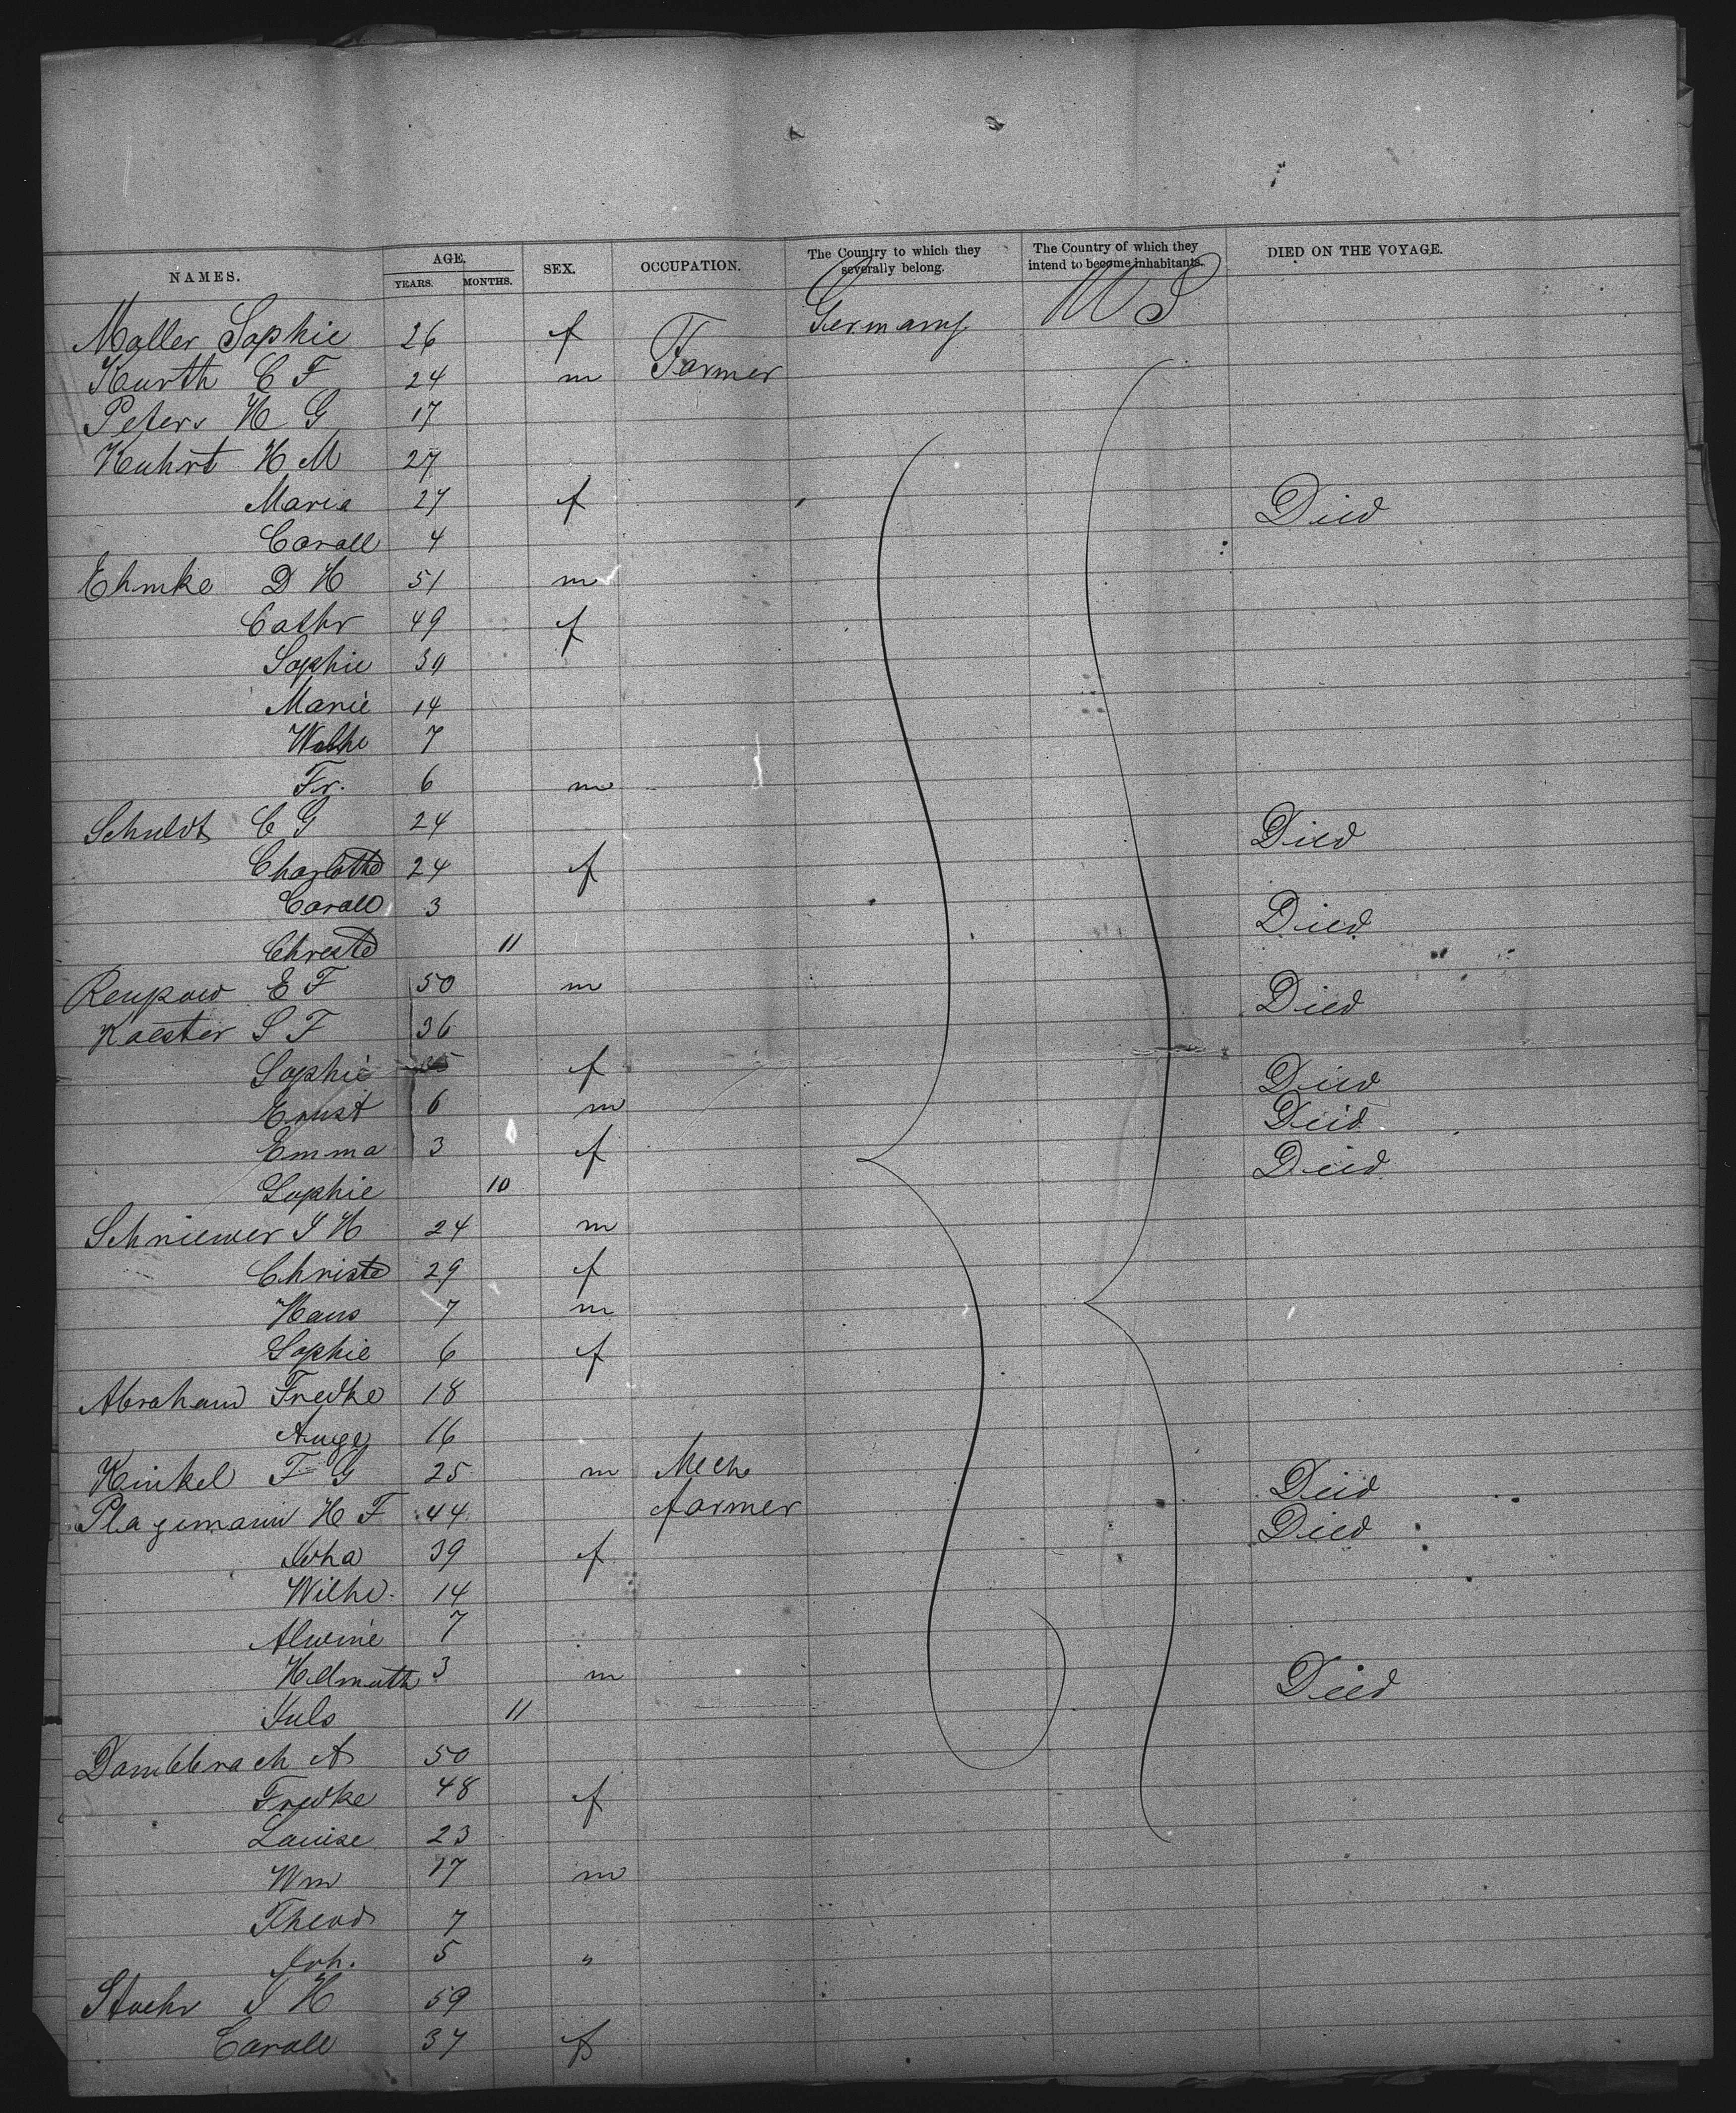 NAMES. AGE. YEARS. MONTHS. SEX. OCCUPATION. The Country to which they severally belong. The Country of which they intend to become inhabitants. DIED ON THE VOYAGE.
Moller Sophie 26 f Germany U S
Kurth C F 24 m Farmer
Peters H G 17
Kuhrt H M 27
Maria 27 f Died
Caroll 4
Ehmke D H 51 m
Cathr 49 f
Sophie 30
Marie 14
Wilhe 7
Fr. 6 m
Schuldt C G 24 Died
Charlotte 24 f
Caroll 3 Died
Christe 11
Renpow E F 50 m Died
Koester S F 36
Sophie f Died
Ernst 6 m Died
Emma 3 f Died
Sophie 10
Schriewer J H 24 m
Christe 29 f
Hans 7 m
Sophie 6 f
Abraham Fredke 18
Auge 16
Kinkel F G 25 m Mech Died
Plagemann H F 44 farmer Died
Joha 39 f
Wilhe. 14
Alwine 7
Helmuth 3 m Died
Juls 11
Dambbrach A 50
Fredke 48 f
Louise 23
Wm 17 m
Theod 7
Joh. 5 "
Stuehr J H 59
Caroll 37 f